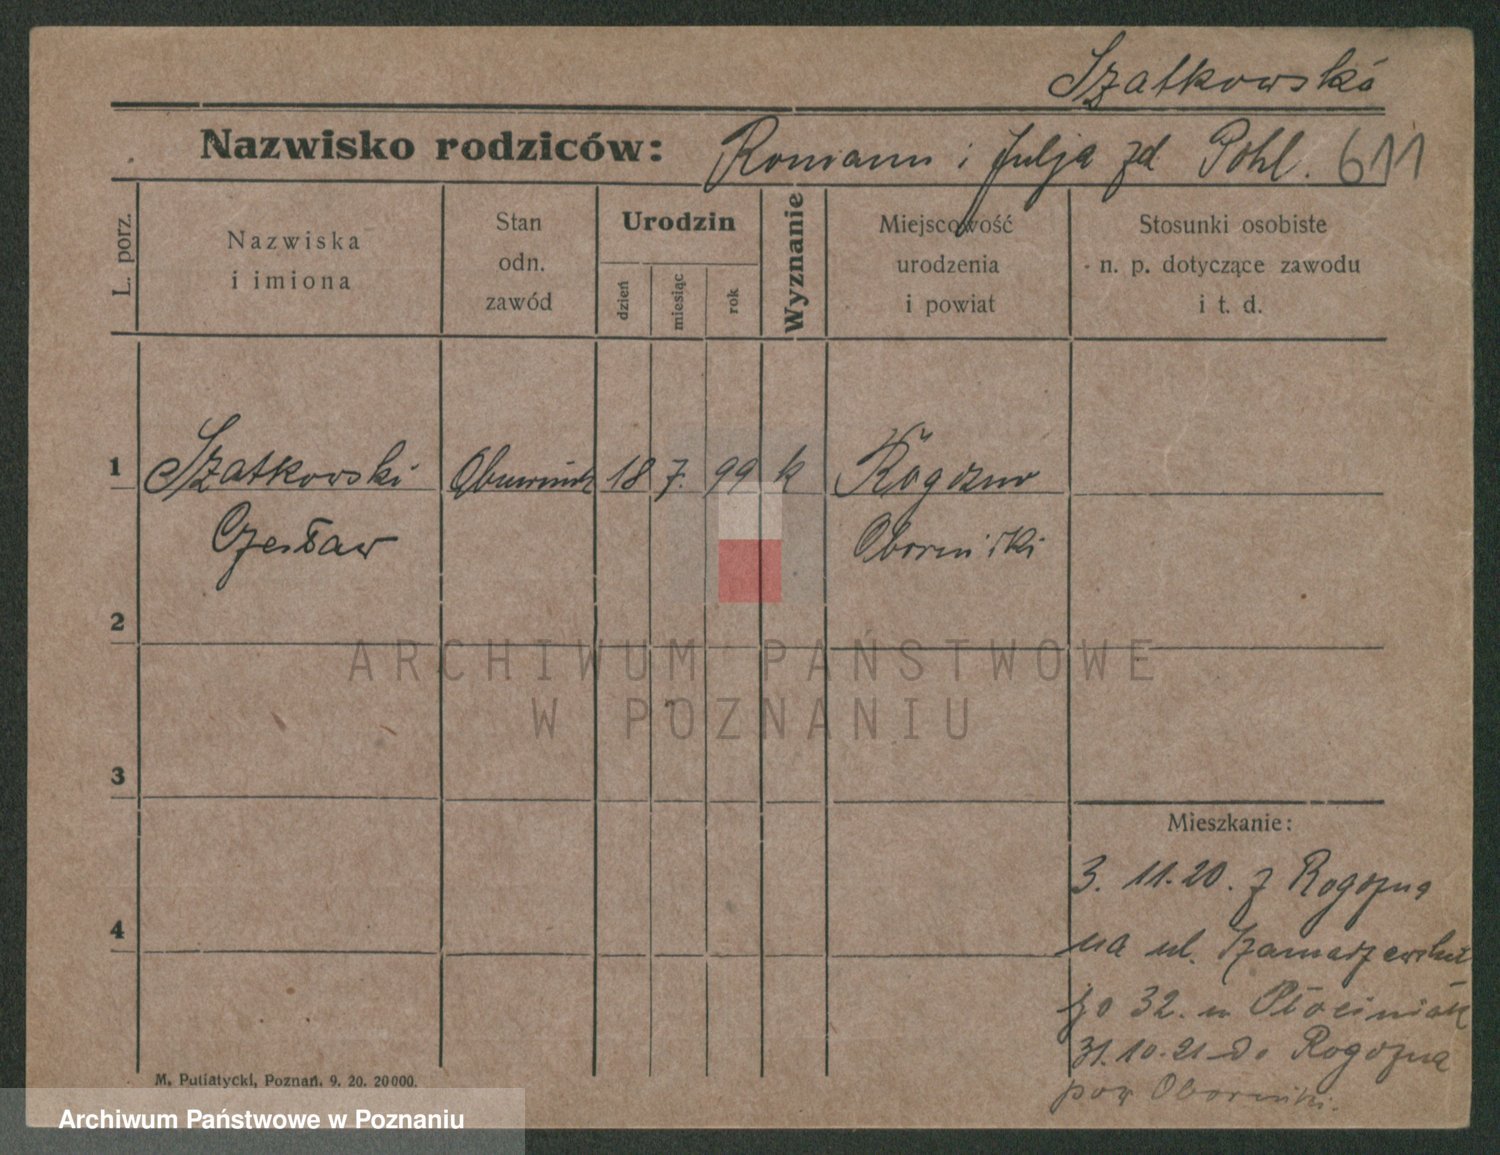 Szatkowska
Nazwisko rodziców: Romann i Julja zd Pohl. 611
L. porz.
Nazwiska
i imiona
Stan
odn.
zawód
Urodzin
dzień
miesiąc
rok
Wyznanie
Miejscowość
urodzenia
i powiat
Stosunki osobiste
n. p. dotyczące zawodu
i t. d.
1 Szatkowski 18 7. 99 k Rogozno
Czesław Obornicki
2
3
4
Mieszkanie:
3. 11.20. z Rogozna
na ul.
32. u Płociniak
31.10.21 do Rogozna
pow Obornicki.
M. Putiatycki, Poznań. 9. 20. 20000.
ARCHIWUM PAŃSTWOWE
W POZNANIU
Archiwum Państwowe w Poznaniu